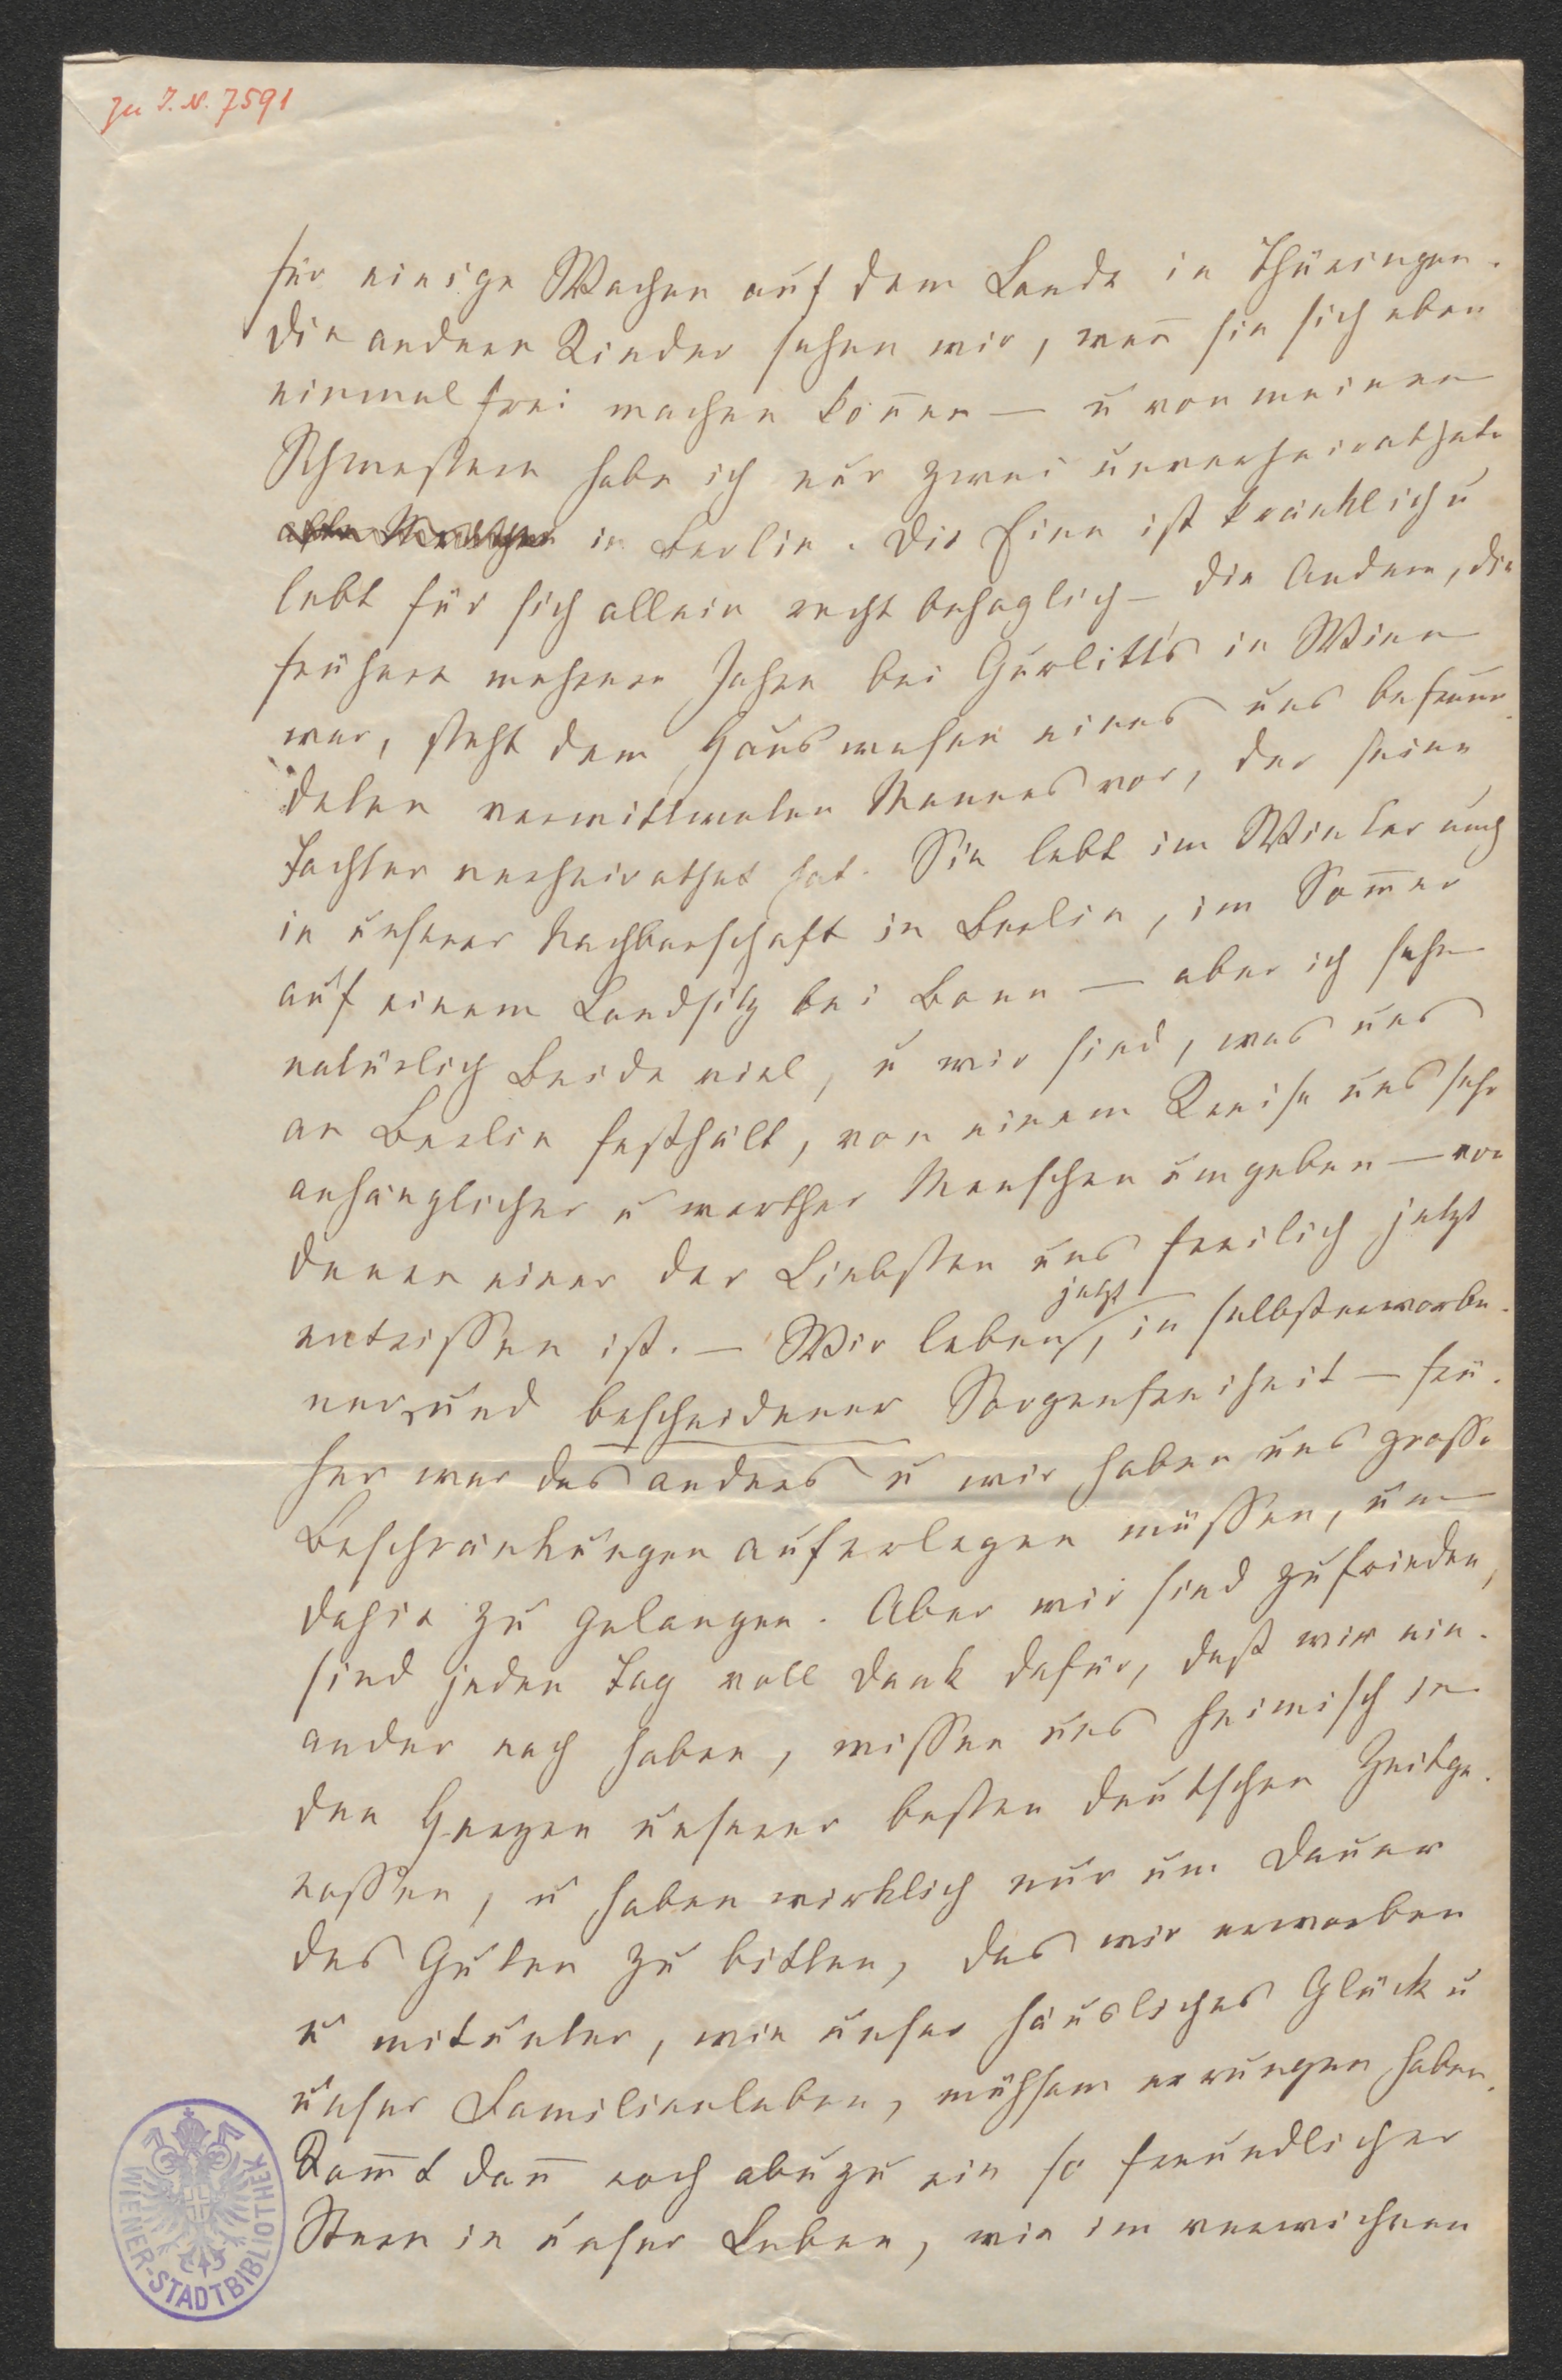 zu I. N. 7591
für einige Wochen auf dem Lande in Thüringen.
Die andern Kinder sehen wir, wen̄ sie sich eben
einmal frei machen kön̄en — u von meinen
Schwestern habe ich nur zwei unverheirathete
in Berlin. Die Eine ist kränklich u
lebt für sich allein recht behaglich — die Andere, die
früher mehrere Jahre bei Gurlitt's in Wien
war, steht dem Hauswesen eines uns befreun-
deten verwittweten Mannes vor, der seine
Tochter verheirathet hat. Sie lebt im Winter auch
in unserer Nachbarschaft in Berlin, im Som̄er
auf einem Landsitz bei Bonn — aber ich sehe
natürlich Beide viel, u wir sind, was uns
an Berlin festhält, von einem Kreise uns sehr
anhänglicher u werther Menschen umgeben — von
denen einer der Liebsten uns freilich jetzt
entrissen ist. — Wir leben jetzt, in selbsterworbe-
ner, und bescheidener Sorgenfreiheit — frü-
her war das anders u wir haben uns grosse
Beschränkungen auferlegen müssen, um
dahin zu gelangen. Aber wir sind zufrieden,
sind jeden Tag voll Dank dafür, daß wir ein-
ander noch haben, wissen uns heimisch in
den Herzen unserer besten deutschen Zeitge-
nossen, u haben wirklich nur um Dauer
des Guten zu bitten, das wir erworben
u mitunter, wie unser häusliches Glück u
unser Familienleben, mühsam errungen haben.
Kom̄t dan̄ noch abuzu ein so freundlicher
Stern in unser Leben, wie im verwichnen
WIENER-STADTBIBLIOTHEK